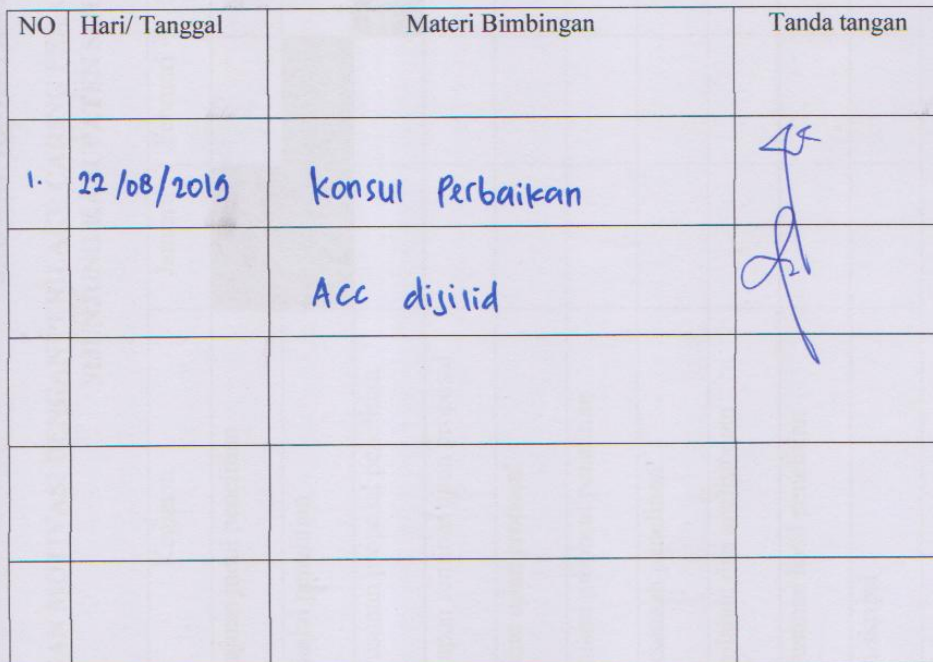 NO Hari/ Tanggal Materi Bimbingan Tanda tangan
1. 22/08/2019 Konsul Perbaikan
Acc disilid